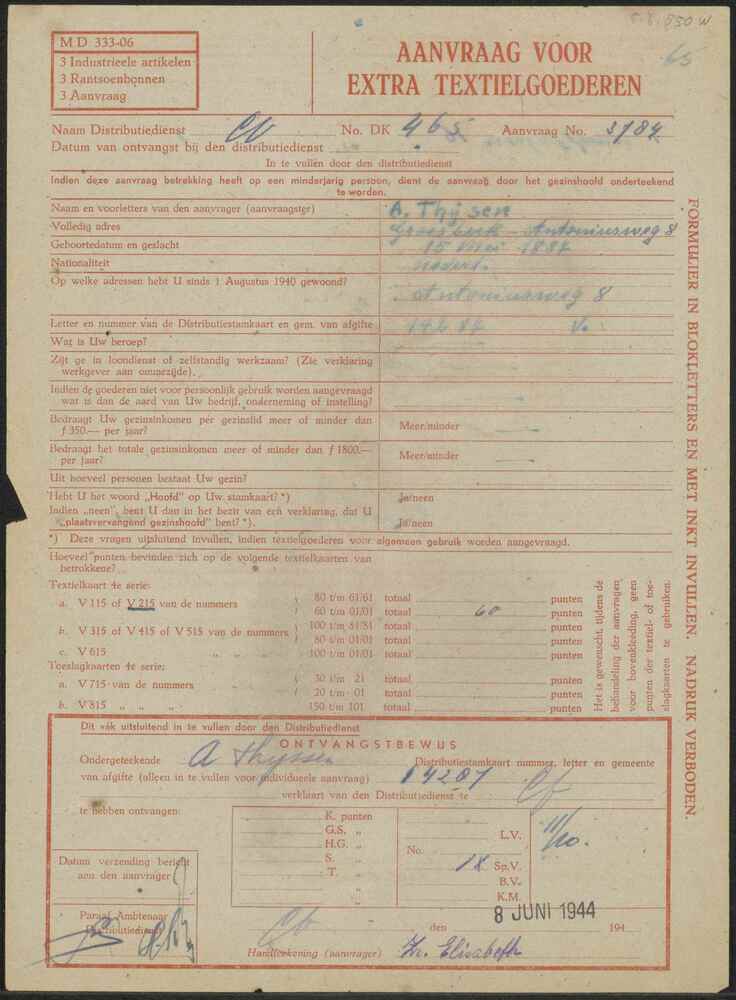 M D 333-06
3 Industrieele artikelen
3 Rantsoenbonnen
3 Aanvraag
AANVRAAG VOOR
EXTRA TEXTIELGOEDEREN
65
Naam Distributiedienst No. DK 465 Aanvraag No. 3784
Datum van ontvangst bij den distributiedienst
In te vullen door den distributiedienst
Indien deze aanvraag betrekking heeft op een minderjarig persoon, dient de aanvraag door het gezinshoofd onderteekend
te worden.
Naam en voorletters van den aanvrager (aanvraagster) A. Thijsen
Volledig adres Groesbeek - Antoniusweg 8
Geboortedatum en geslacht 15 Mei 1884
Nationaliteit Nederl.
Op welke adressen hebt U sinds 1 Augustus 1940 gewoond?
Antoniusweg 8
Letter en nummer van de Distributiestamkaart en gem. van afgifte V.
Wat is Uw beroep?
Zijt ge in loondienst of zelfstandig werkzaam? (Zie verklaring
werkgever aan ommezijde).
Indien de goederen niet voor persoonlijk gebruik worden aangevraagd
wat is dan de aard van Uw bedrijf, onderneming of instelling?
Bedraagt Uw gezinsinkomen per gezinslid meer of minder dan
f 350.— per jaar? Meer/minder
Bedraagt het totale gezinsinkomen meer of minder dan f 1800.—
per jaar? Meer/minder
Uit hoeveel personen bestaat Uw gezin?
Hebt U het woord „Hoofd" op Uw stamkaart? *) Ja/neen
Indien „neen", bent U dan in het bezit van een verklaring, dat U
„plaatsvervangend gezinshoofd" bent? *). Ja/neen
*) Deze vragen uitsluitend invullen, indien textielgoederen voor algemeen gebruik worden aangevraagd.
Hoeveel punten bevinden zich op de volgende textielkaarten van
betrokkene?
Textielkaart 4e serie:
a. V 115 of V 215 van de nummers 80 t/m 61/61 totaal punten
60 t/m 01/01 totaal 60 punten
b. V 315 of V 415 of V 515 van de nummers 100 t/m 81/81 totaal punten
80 t/m 01/01 totaal punten
c. V 615 100 t/m 01/01 totaal punten
Toeslagkaarten 4e serie:
a. V 715 van de nummers 30 t/m 21 totaal punten
20 t/m 01 totaal punten
b. V 815 „ „ „ 150 t/m 101 totaal punten
Het is gewenscht, tijdens de
behandeling der aanvragen
voor bovenkleeding, geen
punten der textiel- of toe-
slagkaarten te gebruiken.
FORMULIER IN BLOKLETTERS EN MET INKT INVULLEN. NADRUK VERBODEN.
Dit vak uitsluitend in te vullen door den Distributiedienst
ONTVANGSTBEWIJS
Ondergeteekende A Thyssen Distributiestamkaart nummer, letter en gemeente
van afgifte (alleen in te vullen voor individueele aanvraag) 14207
verklaart van den Distributiedienst te
te hebben ontvangen:
K. punten
G.S. „
H.G. „
S. „
T. „
No.
L.V.
18 Sp.V.
B.V.
K.M.
11/10.
Datum verzending bericht
aan den aanvrager
Paraaf Ambtenaar
Distributiedienst
8 JUNI 1944
den 194
Handteekening (aanvrager) Zr. Elisabeth